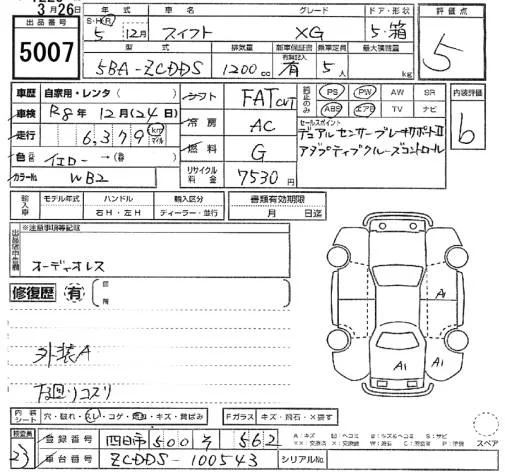 3月26日
出品番号
5007
年式 車名 グレード ドア・形状 評価点
S・H・R 5 12月 スイフト XG 5・箱
5
型式 排気量 新車保証書 乗車定員 最大積載量
有資記入
5BA-ZCDDS 1200cc 有 5人 kg
車歴 自家用・レンタ
車検 R8年12月(24日)
走行 6,379 km マイル
色 イエロー→
カラーNo. WB2
シフト FAT CVT
冷房 AC
燃料 G
リサイクル料金 7530円
純正のみ PS PW AW SR
ABS エアB TV ナビ
内装評価
b
セールスポイント
デュアルセンサーブレーキサポートII
アダプティブクルーズコントロール
輸入車 モデル年式 ハンドル 輸入区分 書類有効期限
右H・左H ディーラー・並行 月 日迄
※注意事項等記載
オーディオレス
修復歴 有
箇所
外装A
下回リコスリ
A1
A1 A1
内装シート 穴・破れ・スレ・コゲ・・キズ・黄ばみ Fガラス キズ・飛石・×要す
A:キズ
スペア
検査員
23
登録番号 四日市 500 そ 562
車台番号 ZCDDS-100543 シリアルNo.